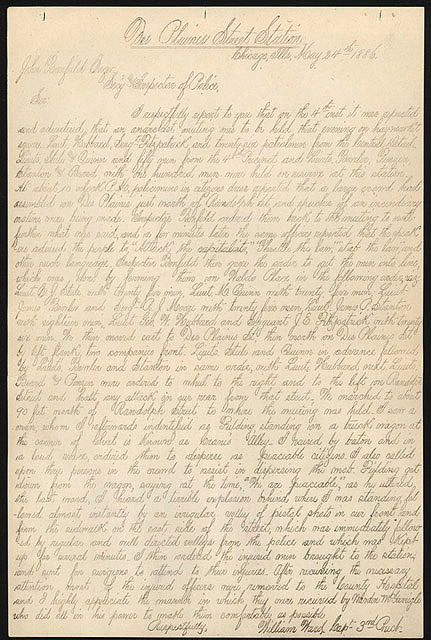 Des Plaines Street Station,
Chicago, Ills, May 24th 1886.
John Bonfield Esqr.
Secy & Inspector of Police,
Sir:
I respectfully report to you that on the 4th inst it was reported
and advertised, that an anarchist meeting was to be held, that evening on haymarket
square. Lieut. Hubbard, Sergt. Fitzpatrick, and twenty six patrolmen from the Central Detail,
Lieuts. Steele & Quinn and fifty men from the 4th Precinct and Lieuts. Bowler, Penzen,
Stanton & Beard with one hundred men were held in reserve at this station.
At about 10 o'clock P.M. policemen in citizens dress reported that a large crowd had
assembled on Des Plaines just north of Randolph St. and speeches of an incendiary
nature were being made. Inspector Bonfield ordered them back to the meeting to note
further what was said, and a few minutes later the same officers reported that the speaker
advised the people to "Attack the capitalists" "Throttle the law," "stab the law" and
other such language. Inspector Bonfield then gave the order to call the men into line,
which was done by forming them on Waldo Place in the following order, viz:
Lieut E. J. Steele with thirty five men, Lieut. M. Quinn with twenty five men, Lieut.
James Bowler and Sergt. R. J. Moore with twenty five men, Lieut. James P. Stanton
with eighteen men, Lieut. Geo. W. Hubbard and Sergeant J. E. Fitzpatrick, with twenty
six men. We then moved east to Des Plaines St. then north on Des Plaines St.
by left flank, two companies front. Lieuts. Steele and Quinn in advance followed
by Lieuts. Bowler and Stanton in same order, with Lieut. Hubbard next. Lieuts.
Beard & Penzen were ordered to wheel to the right and to the left on Randolph
Street and halt any attack on our rear from that street. We marched to about
90 feet north of Randolph Street to where the meeting was held. I saw a
man, whom I afterwards indentified as Fielding standing on a truck wagon at
the corner of what is known as Crane's Alley. I raised by baton and in
a loud voice, ordered them to disperse as peaceable citizens. I also called
upon three persons in the crowd to assist in dispersing the mob. Fielding got
down from the wagon, saying at the time, "We are peaceable", as he uttered,
the last word, I heard a terrible explosion behind where I was standing fol-
lowed almost instantly by an irregular volley of pistol shots in our front and
from the sidewalk on the east side of the street, which was immediately follow-
ed by regular and well directed volleys from the police and which was kept
up for several minutes. I then ordered the injured men brought to the station,
and sent for surgeons to attend to their injuries. After receiving the necessary
attention most of the injured officers were removed to the County Hospital
and I highly appreciate the manner in which they were received by Warden McGarrigle
who did all in his power to make them comfortable as possible.
Respectfully,
William Ward, Capt. 3rd Prect.